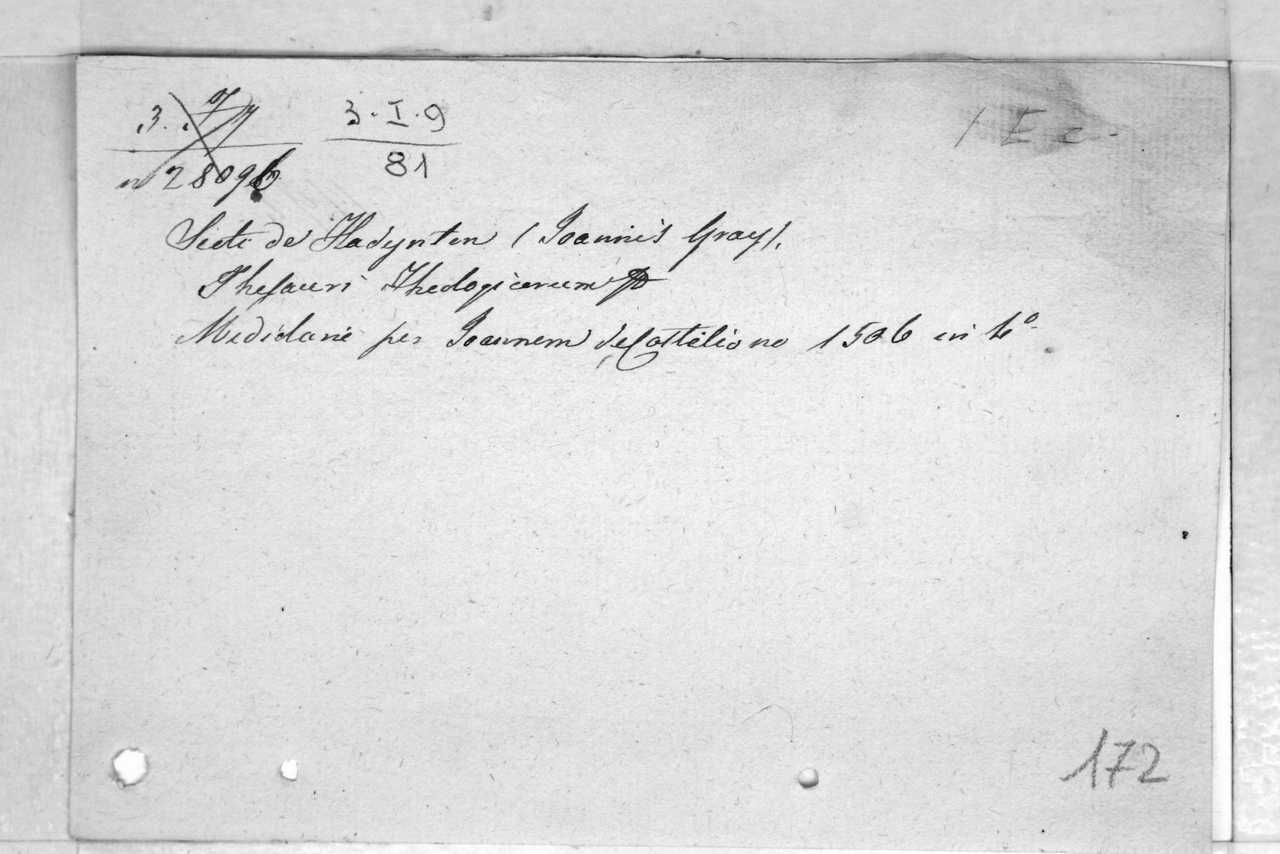 3. I. 9
n 28096 81
1 E c.
Scoti de Hadynton (Joannis Gray).
Thesauri Theologicorum
Mediolani per Joannem de Castiliono 1506 in 4º
172